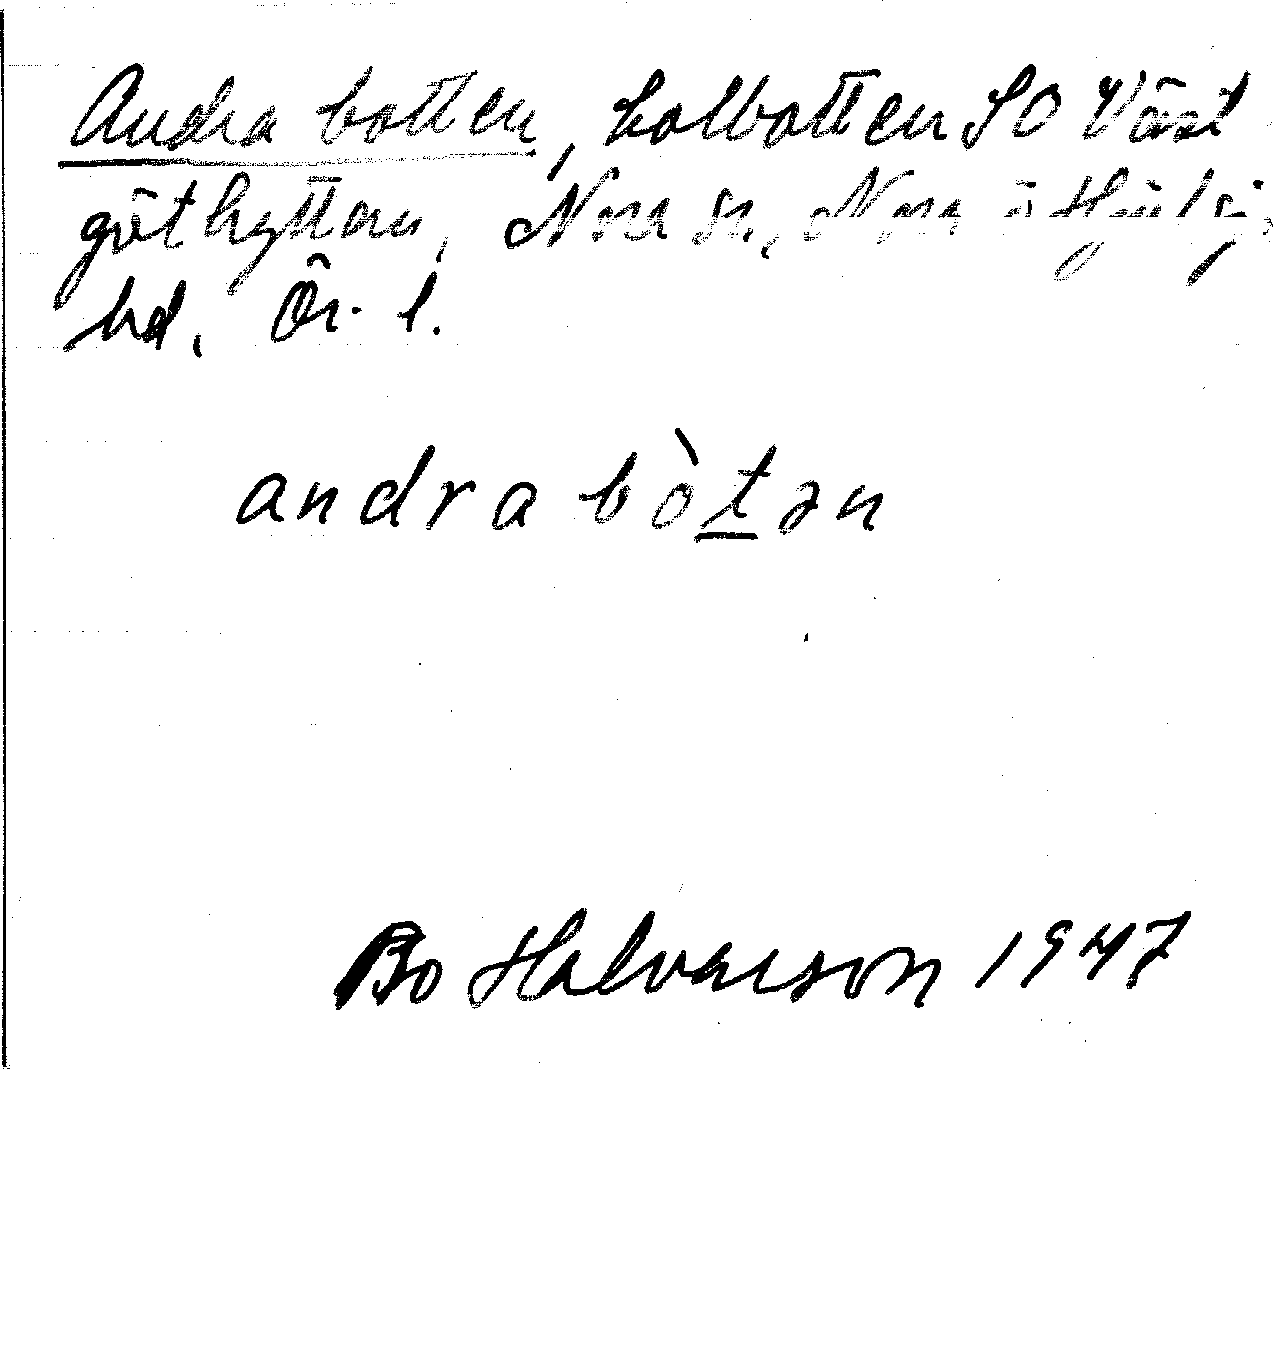 Andra botten, kolbotten SO Väst
göthyttan, Nora sn, Nora o Hjulsjö
hd, Ör. l.
andra bòt̲ən
Bo Halvarson 1947